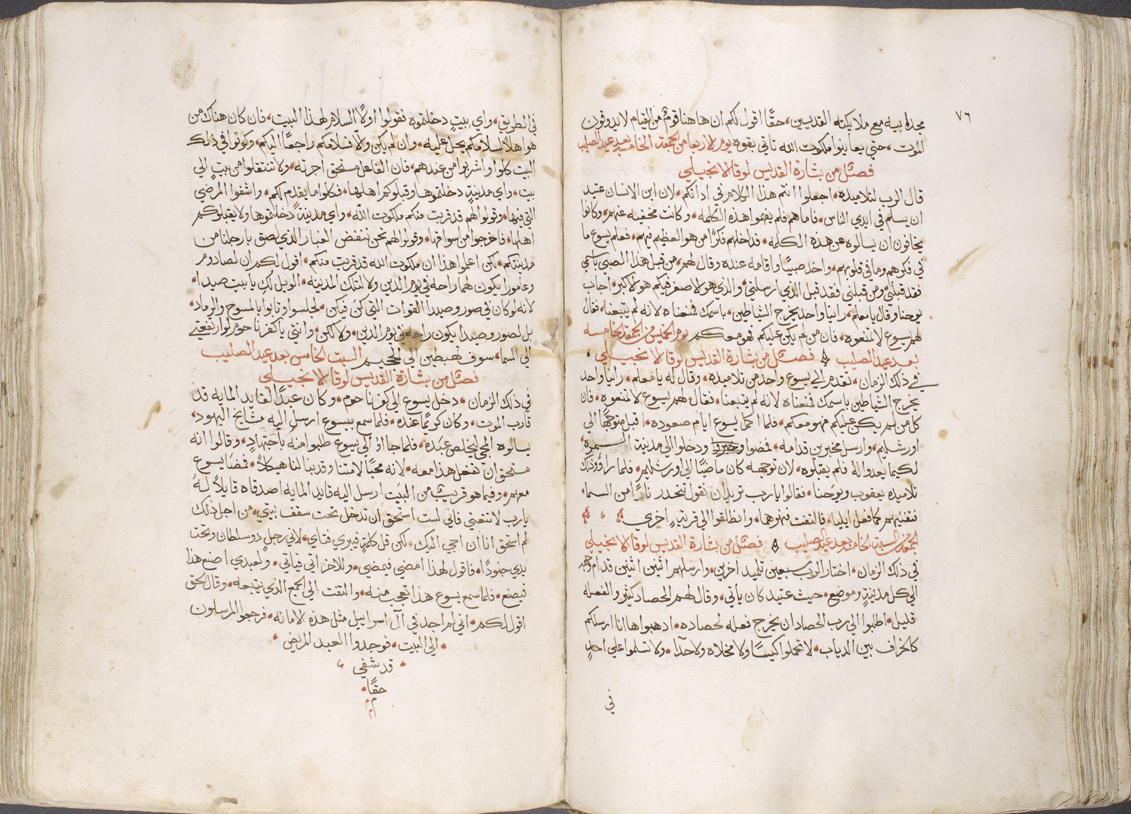 ٧٦
مجده ابيه مع ملايكته القديسين حقًا اقول لكم ان هاهنا قوم من القيام لا يدوقون
الموت حتي يعاينوا ملكوت الله تاتي بقوه يوم الاربعا من الجمعه الخامسه بعد عيد الصليب
فصل من بشارة القديس لوقا الانجيلي
قال الرب لتلاميده اجعلوا انتم هذا الكلام في ادانكم لان ابن الانسان عتيد
ان يسلم في ايدي الناس فاما هم فلم يفهموا هذه الكلمه وكانت مخفيه عنهم وكانوا
يخافون ان يسالوه عن هذه الكلمه فدخلهم فكرًا من هو العظم فيهم فعلم يسوع ما
في فكرهم وما في قلوبهم واخد صبيًا واقامه عنده وقال لهم من قبل هذا الصبي باسمي
فقد قبلني ومن قبلني فقد قبل الذي ارسلني والذي هو لاصغر فيكم هو لاكبر اجاب
يوحنا وقال يامعلم راينا واحد يخرج الشياطين باسمك فنعناه لانه لم يتبعنا فقال
لهم يسوع لا تمنعوه فان من لم يكن عليكم فهو معكم يوم الخميس من الجمعه الخامسه
بعد عيد الصليب فصل من بشارة القديس لوقا الانجيلي
في ذلك الزمان تقدم الي يسوع واحد من تلاميده وقال له يا معلم راينا واحد
يخرج الشياطين باسمك فنعناه لانه لم يتبعنا فقال لهم يسوع لا تمنعوه فان
كل من لم يكن عليكم فهو معكم فلما اكمل يسوع ايام صعوده اقبل متوجهًا الي
اورشليم وارسل مخبرين قدامه فمضوا ودخلوا الي مدينة السمره
لكيما يعدوا له فلم يقبلوه لان توجهه كان ماضيًا الي اورشليم فلما راوا ذلك
تلاميده يعقوب ويوحنا فقالوا يارب تريد ان نقول تنحدر نارًا من السما
فتفنيهم كما فعل ايليا فالتفت فنهرهما وانطلقوا الي قريةٍ اخري
الجمعه من السبة الخامسه بعد عيد الصليب فصل من بشارة القديس لوقا الانجيلي
في ذلك الزمان اختار الرب سبعين تلميد اخرين وارسلهم اثنين اثنين قدام وجهه
الي كل مدينةٍ وموضع حيث عتيد كان ياتي وقال لهم الحصاد كثير والفعله
قليل اطلبوا الي رب الحصاد ان يخرج فعله لحصاده ادهبوا ها انا ارسلكم
كالخراف بين الدياب لا تحملوا كيسًا ولا مخلاه ولا حدآ ولا تسلموا علي احدٍ
في
في الطريق واي بيتٍ دخلتموه فقولوا اولاً السلام لهذا البيت فان كان هناك من
هو اهلاً لسلامكم يحل عليه وان لم يكن والا فسلامكم راجعًا اليكم وكونوا في ذلك
البيت كلوا واشربوا من عندهم فان الفاعل مستحق اجرته ولا تنتقلوا من بيتٍ الي
بيت واي مدينةٍ دخلتموها وقبلوكم اهلها فكلوا ما يقدم لكم واشفوا المرضي
التي فيها وقولوا لهم قد قربت منكم ملكوت الله واي مدينة دخلتموها ولا يقبلوكم
اهلها فاخرجوا من اسواقها وقولوا لهم نحن ننفض الغبار الذي لصق بارجلنا من
مدينتكم لكن اعلموا هذا ان ملكوت الله قد قربت منكم اقول لكم ان لصادوم
وعامورا يكون هما راحه في يوم الدين ولا لتلك المدينه الويل لك يا بيت صيدا
لانه لو كان في صور وصيدا القوات التي كن فيكن لجلسوا وتابوا بالمسوح والرماد
بل لصور وصيدا يكون راحه في يوم الدين ولا لكن وانتي ياكفرناحوم لو ارتفعتي
الي السما سوف تهبطين الي الجحيم السبت الخامس بعد عيد الصليب
فصل من بشارة القديس لوقا الانجيلي
في ذلك الزمان دخل يسوع الي كفرناحوم وكان عبدًا لقايد المايه قد
قارب الموت وكان كريمًا عنده فلما سمع بيسوع ارسل اليه مشايخ اليهود
يسالوه المجي ليخلص عبده فلما جاوا الي يسوع طلبوا منه باجتهادٍ وقالوا انه
مستحق ان تفعل هذا معه لانه محبًا لامتنا وقد بنا لنا هيكلاً فمضا يسوع
معهم وفيما هو قريب من البيت ارسل اليه قايد المايه اصدقاه قايلاً له
يارب لا تتعني فاني لست استحق ان تدخل تحت سقف بيتي من اجل ذلك
لم استحق انا ان اجي اليك لكن قل كلمه فيبري فتاي لاني رجلٍ دو سلطان وتحت
يدي جنودًا فاقول لهذا امضي فيمضي وللاخر اتي فياتي ولعبدي اصنع هذا
فيصنع فلما سمع يسوع هذا تعجب منه والتفت الي الجمع الذي يتبعه وقال الحق
اقول لكم اني لم اجد في آل اسراييل مثل هذه الامانه فرجعوا المرسلون
الي البيت فوجدوا العبد المريض
قد شفي
حقًا